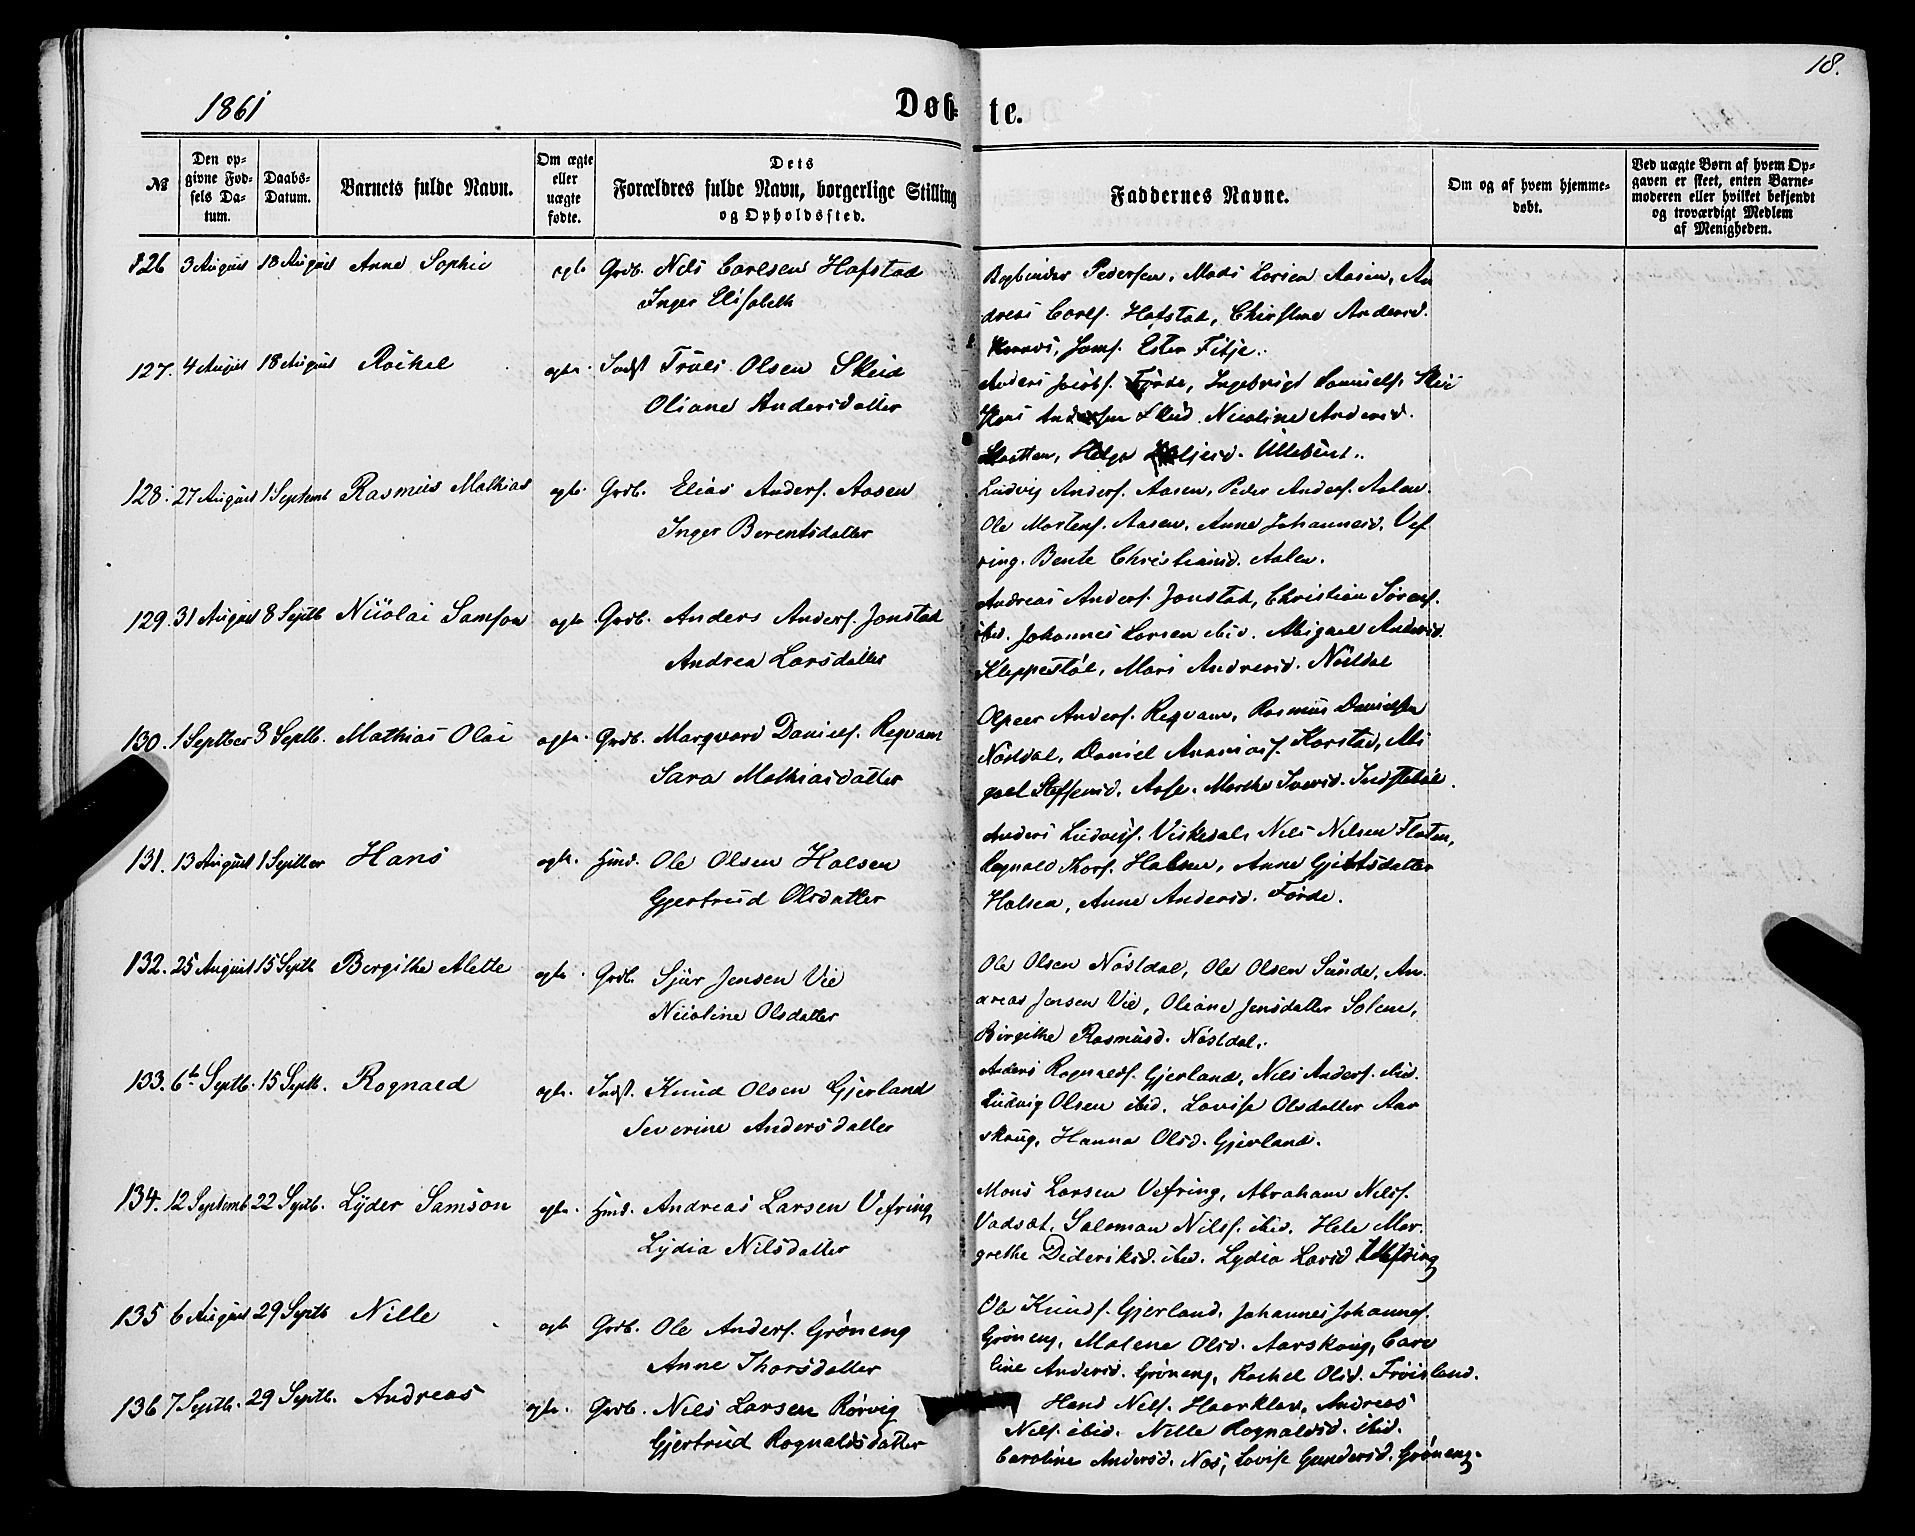 18.
1861
Døbte.
№
Den opgivne Fødsels Datum.
Daabs-Datum.
Barnets fulde Navn.
Om ægte eller uægte fødte.
Dets Forældres fulde Navn, borgerlige Stilling og Opholdssted.
Faddernes Navne.
Om og af hvem hjemmedøbt.
Ved uægte Børn af hvem Opgaven er skeet, enten Barnemoderen eller hvilket bekjendt og troværdigt Medlem af Menigheden.
126 3 August 18 August Anne Sophie ægte Grdb. Nils Carlsen Hafstad
Inger Elisabeth
Bogbinder Pedersen, Mads Larsen Aasen, An
dreas Carls. Hafstad, Christine Andersd.
Jomf. Ester Fitje.
127. 4 August 18 August Rachel ægte. Indst Truls Olsen Skeid
Oliane Andersdatter
Anders Jacobs. Førde, Ingebrigt Samuels. Skei
Hans Andersen Skeid Nicoline Andersd.
Helge Ullebust.
128. 27 August 1 Septemb Rasmus Mathias ægte. Grdb. Elias Anders. Aasen
Inger Berentsdatter
Ludvig Anders. Aasen, Peder Anders. Aalen.
Ole Mortens. Aasen, Anne Johannesd. Vef
ring. Bente Christiansd. Aalen.
129. 31 August 8 Septb Nicolai Samson ægte Grdb. Anders Anders. Jonstad
Andrea Larsdatter
Andreas Anders. Jonstad, Christian Sørens.
ibid. Johannes Larsen ibid. Abigael Andersd.
Kleppestøl, Mari Andresd. Nøstdal
130. 1 Septber 8 Septb. Mathias Olai ægte. Grdb. Marqvard Daniels. Reqvam
Sara Mathiasdatter
Olpeer Anders. Reqvam, Rasmus Danielsen
Nøstdal, Daniel Ananias. Karstad, Abi
gael Steffensd. Aase. Marthe Iversd. Indstebøe.
131. 13 August 1 Septber Hans ægte. Hmd. Ole Olsen Halsen
Gjertrud Olsdatter
Anders Ludvigs. Viskedal. Nils Nilsen Flaten,
Rognald Thors. Halsen, Anne Gjertsdatter
Halsen, Anne Andersd. Førde.
132. 25 August 15 Septb Bergithe Alette ægte. Grdb. Sjur Jensen Vie
Nicoline Olsdatter
Ole Olsen Nøstdal, Ole Olsen Sunde, An-
dreas Jensen Vie, Oliane Jensdatter Solem,
Birgithe Rasmusd. Nøstdal.
133. 6te Septb. 15 Septb. Rognald ægte. Indst. Knud Olsen Gjerland
Severine Andersdatter
Anders Rognalds. Gjerland, Nils Anders. ibid.
Ludvig Olsen ibid. Lovise Olsdatter Aar
skoug, Hanna Olsd. Gjerland.
134. 12 Septemb 22 Septb. Lyder Samson ægte. Hmd. Andreas Larsen Vefring
Lydia Nilsdatter
Mons Larsen Vefring, Abraham Nils.
Vadset, Salomon Nils. ibid. Hele Mar-
grethe Dideriksd. ibid. Lydia Larsd Vefring
135 6 August 29 Septb Nille ægte Grdb. Ole Anders. Grøneng
Anne Thorsdatter
Ole Knuds. Gjerland, Johannes Johannes.
Grøneng, Malene Olsd. Aarskoug, Caro
line Andersd. Grøneng, Rachel Olsd. Frøisland.
136 7 Septb. 29 Septb. Andreas ægte. Grdb. Nils Larsen Rørvig
Gjertrud Rognaldsdatter
Hans Nils. Haarklau, Andreas
Nils. ibid. Nille Rognaldsd. ibid.
Caroline Andersd. Nas, Lovise Gundersd. Grøneng.